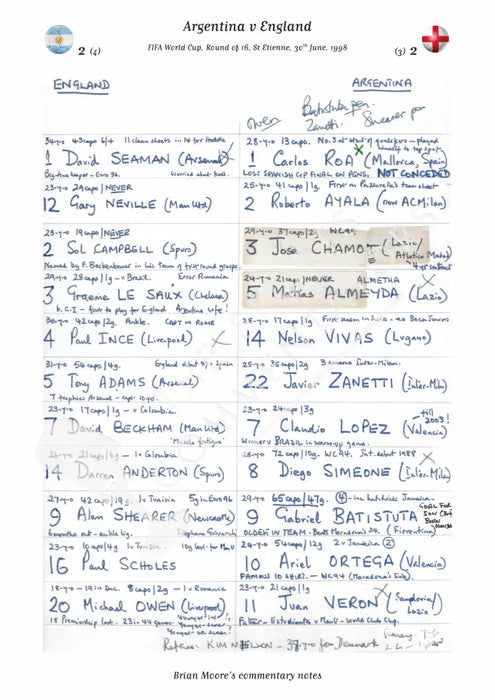 Argentina v England
2 (4)
FIFA World Cup, Round of 16, St Etienne, 30th June, 1998
(3) 2
ENGLAND
ARGENTINA
Batistuta pen.
Owen
Zanetti
Shearer pen
34-y-o 43 caps 6/4 11 clean sheets in 14 for Hoddle
1 David SEAMAN (Arsenal)
Big-time keeper - Euro 96. Worried about ball.
28-y-o 13 caps. No. 3 at start of qualifiers - played himself to top spot
1 Carlos ROA (Mallorca, Spain)
LOST SPANISH CUP FINAL ON PENS. NOT CONCEDED
23-y-o 29 caps/NEVER
12 Gary NEVILLE (Man Utd)
25-y-o 41 caps/1g. First on Passarella's team sheet
2 Roberto AYALA (now AC Milan)
23-y-o 19 caps/NEVER
2 Sol CAMPBELL (Spurs)
Named by F. Beckenbauer in his team of first round groups.
29-y-o 37 caps/2g WC94.
3 Jose CHAMOT (Lazio/
Atletico Madrid)
4 yr contract
29-y-o 28 caps/1g - v Brazil. Error Rumania
3 Graeme LE SAUX (Chelsea)
b. C.I - first to play for England
24-y-o 21 caps/NEVER ALMETHA
5 Matias ALMEYDA (Lazio)
30-y-o 42 caps/2g. Ankle. CAPT in ROME
4 Paul INCE (Liverpool)
28-y-o 17 caps/1g
14 Nelson VIVAS (Lugano)
31-y-o 54 caps/4g. England debut 87 v Spain
5 Tony ADAMS (Arsenal)
7 trophies Arsenal - capt 10 yo.
25-y-o 35 caps/2g Became Inter-Milan.
22 Javier ZANETTI (Inter. Mil)
23-y-o 17 caps/1g - v Colombia.
7 David BECKHAM (Man Utd)
'Muscle fatigue'
23-y-o 24 caps/3g
7 Claudio LOPEZ (Valencia)
till 2003!
Winner v BRAZIL in warm-up game.
26-y-o 21 caps/6g - 1 v Colombia
14 Darren ANDERTON (Spurs)
28-y-o 72 caps/10g. WC94. Int. debut 1988
8 Diego SIMEONE (Inter. Mila)
27-y-o 42 caps/19g. 1 v Tunisia 5g in Euro 96
9 Alan SHEARER (Newcastle)
6 months out - ankle lig.
29-y-o 65 caps/47g. (4) - inc hat-trick Jamaica.
9 Gabriel BATISTUTA
OLDEST IN TEAM - Beats Maradona's 34. (Fiorentina)
23-y-o 10 caps/4g 1 v Tunisia. 10g last for Man U
16 Paul SCHOLES
24-y-o 54 caps/12g 2 v Jamaica (2)
10 Ariel ORTEGA (Valencia)
FAMOUS 10 SHIRT - WC94 (Maradona's Sub).
18-y-o - 19 in Dec. 8 caps/2g - 1 v Rumania
20 Michael OWEN (Liverpool)
18 Premiership last. 23 in 44 games
23-y-o 21 caps/1g
11 Juan VERON (Sampdoria/
Lazio)
Father - Estudiante v Man U - World Club Cup.
Referee KIM NIELSON - 37-y-o from Denmark
Brian Moore's commentary notes